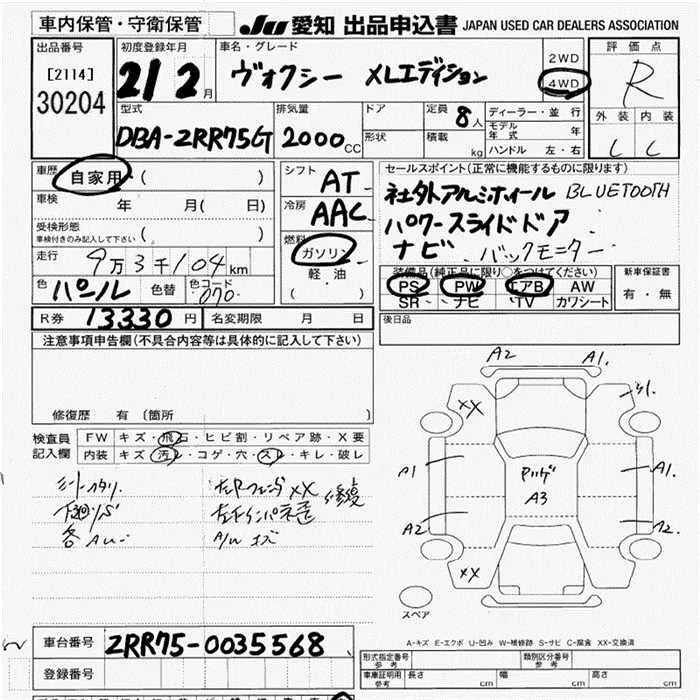 車内保管・守衛保管
JU 愛知 出品申込書 JAPAN USED CAR DEALERS ASSOCIATION
出品番号
[2114]
30204
初度登録年月
21 2 月
車名・グレード
ヴォクシー XLエディション
2WD
4WD
評価点
R
外装 内装
C C
型式
DBA-ZRR75G
排気量
2000 CC
ドア
形状
定員
8 人
積載
kg
ディーラー・並行
モデル年式 年
ハンドル 左・右
車歴
自家用 ( )
車検 年 月( 日)
受検形態
車検付きのみ記入して下さい ( )
走行
9万3千104 km
色 パール 色替 色コード 070
シフト AT
冷房 AAC
燃料
ガソリン
軽・油
( )
セールスポイント(正常に機能するものに限ります)
社外アルミホイール BLUETOOTH
パワースライドドア
ナビ バックモニター
装備品(純正品に限り○をつけてください)
PS PW エアB AW
SR ナビ TV カワシート
新車保証書
有・無
R券 13330 円 名変期限 月 日
後日品
注意事項申告欄(不具合内容等は具体的に記入して下さい)
修復歴 有 〔箇所 〕
検査員
記入欄
FW キズ・飛石・ヒビ割・リペア跡・X要
内装 キズ・汚レ・コゲ・穴・スレ・キレ・破レ
A2 A1.
XX
A1 A1.
A3
A2 A2
XX
スペア
A-キズ E-エクボ U-凹み W-補修跡 S-サビ C-腐食 XX-交換済
車台番号 ZRR75-0035568
登録番号
形式指定番号
参考
類別区分番号
参考
車庫証明用
参考
長さ cm 幅 cm 高さ cm